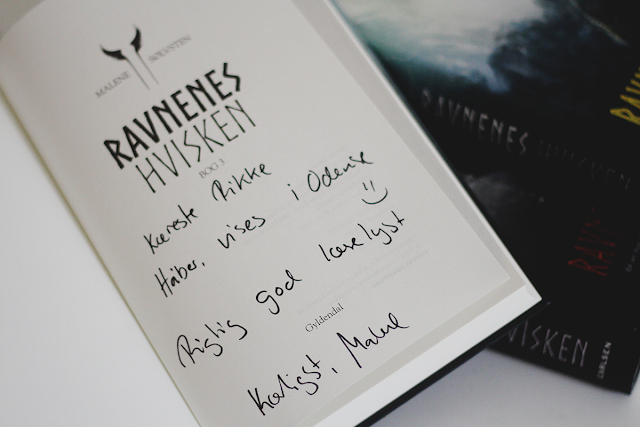 MALENE SØLVSTEN
RAVNENES
HVISKEN
BOG 3
Kæreste Rikke
Håber, vi ses i Odense
:)
Rigtig god læselyst
Gyldendal
Kærligst, Malene
RAVNENES HVISKEN
HVISKEN
CARLSEN